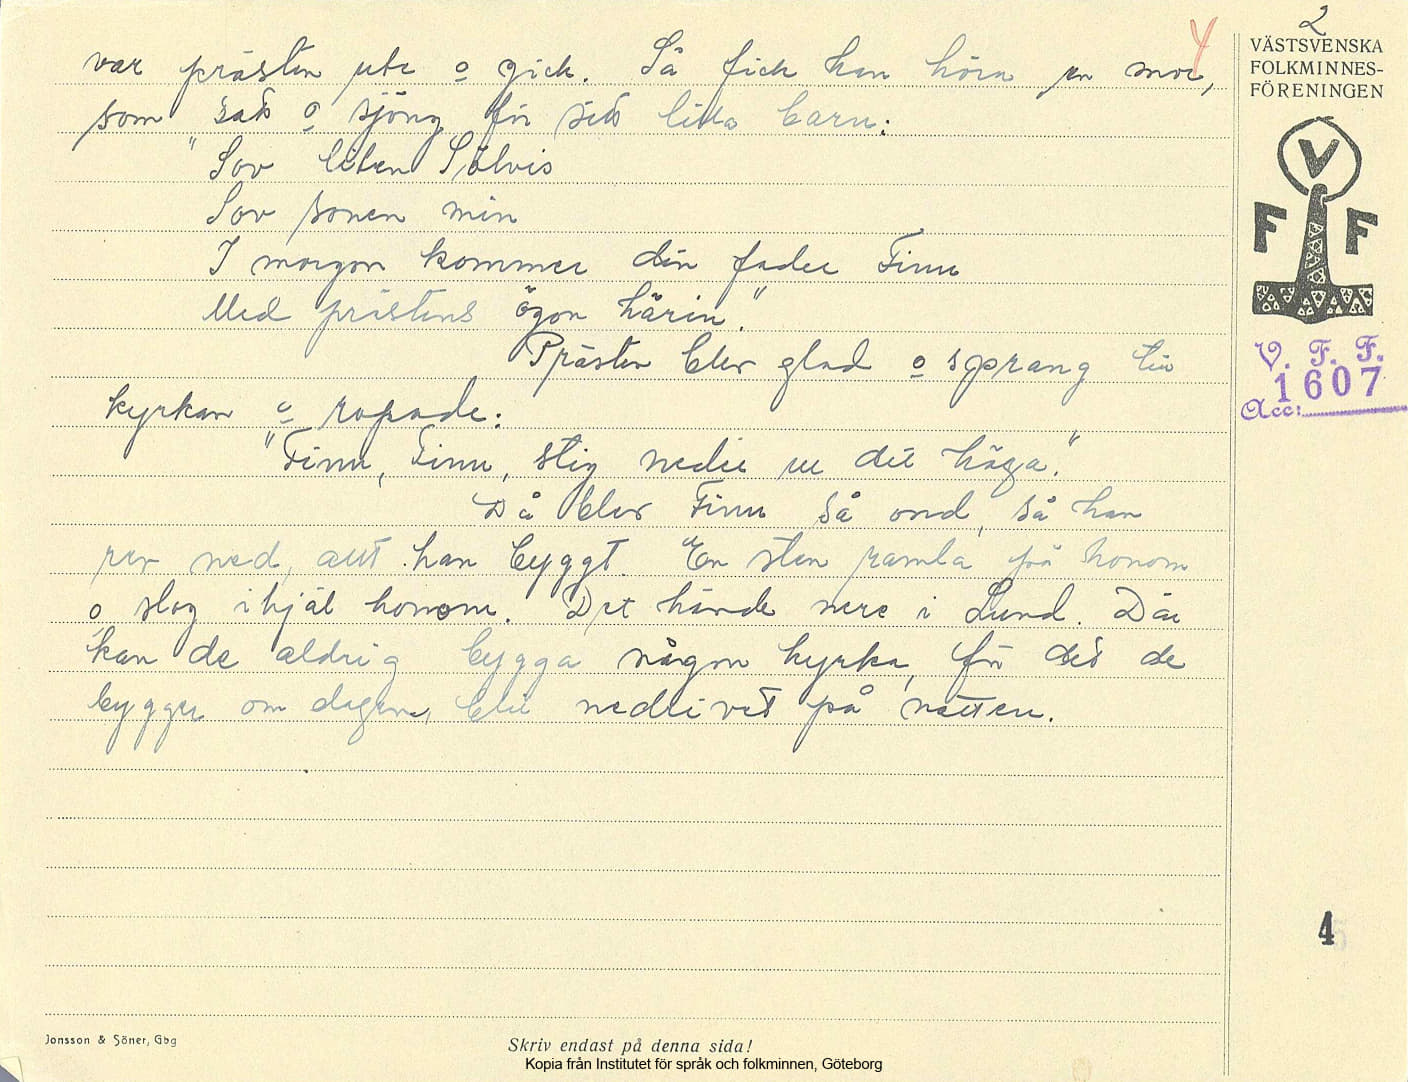 2
4
VÄSTSVENSKA
FOLKMINNES-
FÖRENINGEN
V
F F
V. F. F.
1607
Acc:
var prästen ute o gick. Så fick han höra en mor,
som satt o sjöng för sitt lilla barn:
"Sov liten Sölvis
Sov sonen min
I morgon kommer din fader Finn
Med prästens ögon härin."
Prästen blev glad o sprang till
kyrkan o ropade:
"Finn, Finn, stig neder ur det höga."
Då blev Finn så ond, så han
rev ned, allt han byggt. En sten ramla på honom
o slog ihjäl honom. Det hände nere i Lund. Där
kan de aldrig bygga någon kyrka, för det de
bygger om dagen, blir nedrivet på natten.
4
Jonsson & Söner, Gbg
Skriv endast på denna sida!
Kopia från Institutet för språk och folkminnen, Göteborg